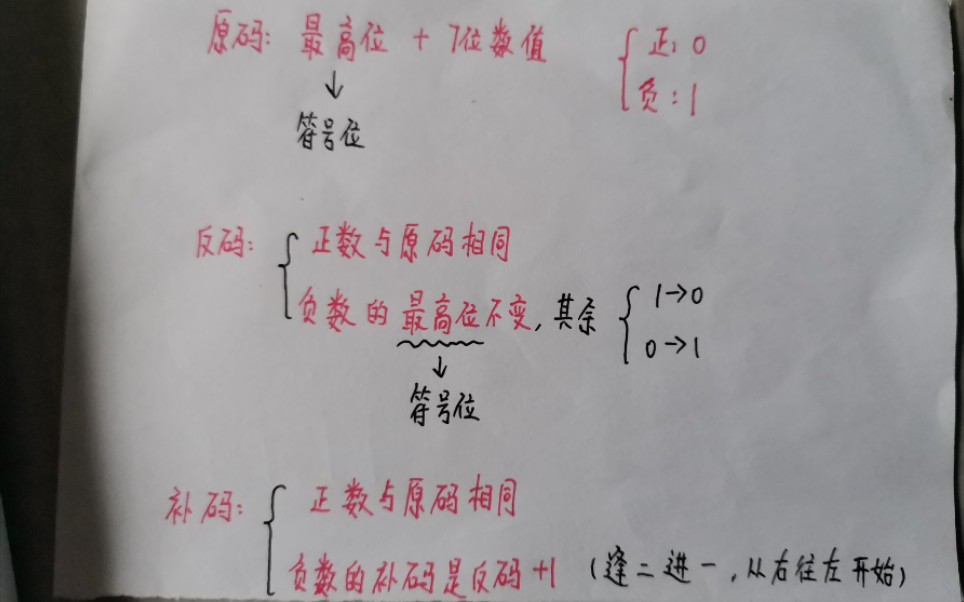 原码: 最高位 + 7位数值 { 正: 0
负: 1
↓
符号位
反码: { 正数与原码相同
负数的最高位不变, 其余 { 1→0
0→1
↓
符号位
补码: { 正数与原码相同
负数的补码是反码+1 (逢二进一, 从右往左开始)